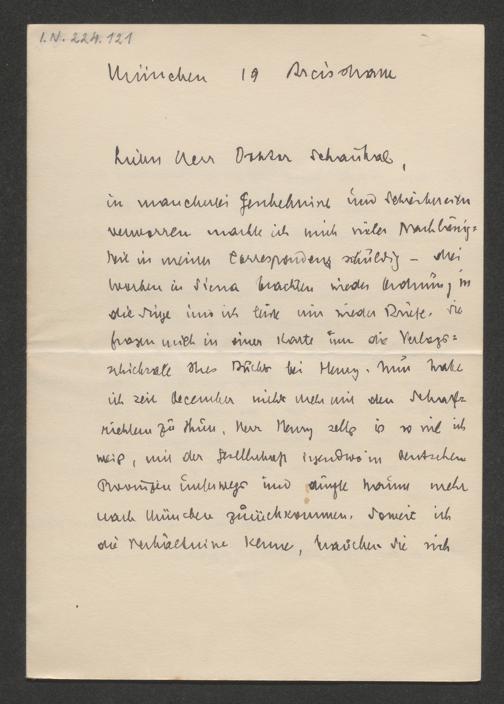 I.N. 224.121
München 19 Arcisstrasse
Lieber Herr Doktor Schaukal,
in mancherlei Geschehnisse und
verworren machte ich mich vieler Nachlässig-
keit in meiner Correspondenz schuldig – drei
Wochen in Siena brachten wieder Ordnung in
die Dinge und ich wieder Briefe. Sie
fragen mich in einer Karte um die Verlags-
schicksale Ihres Buches bei Henry. Nun habe
ich seit december nichts mehr mit den Scharf-
richtern zu thun, Herr Henry selbst ist so viel ich
weiss, mit der Gesellschaft irgendwo in deutschen
Provinzen unterwegs und dürfte kaum mehr
nach München zurückkommen. Soweit ich
die Verhältnisse kenne, brauchen Sie sich